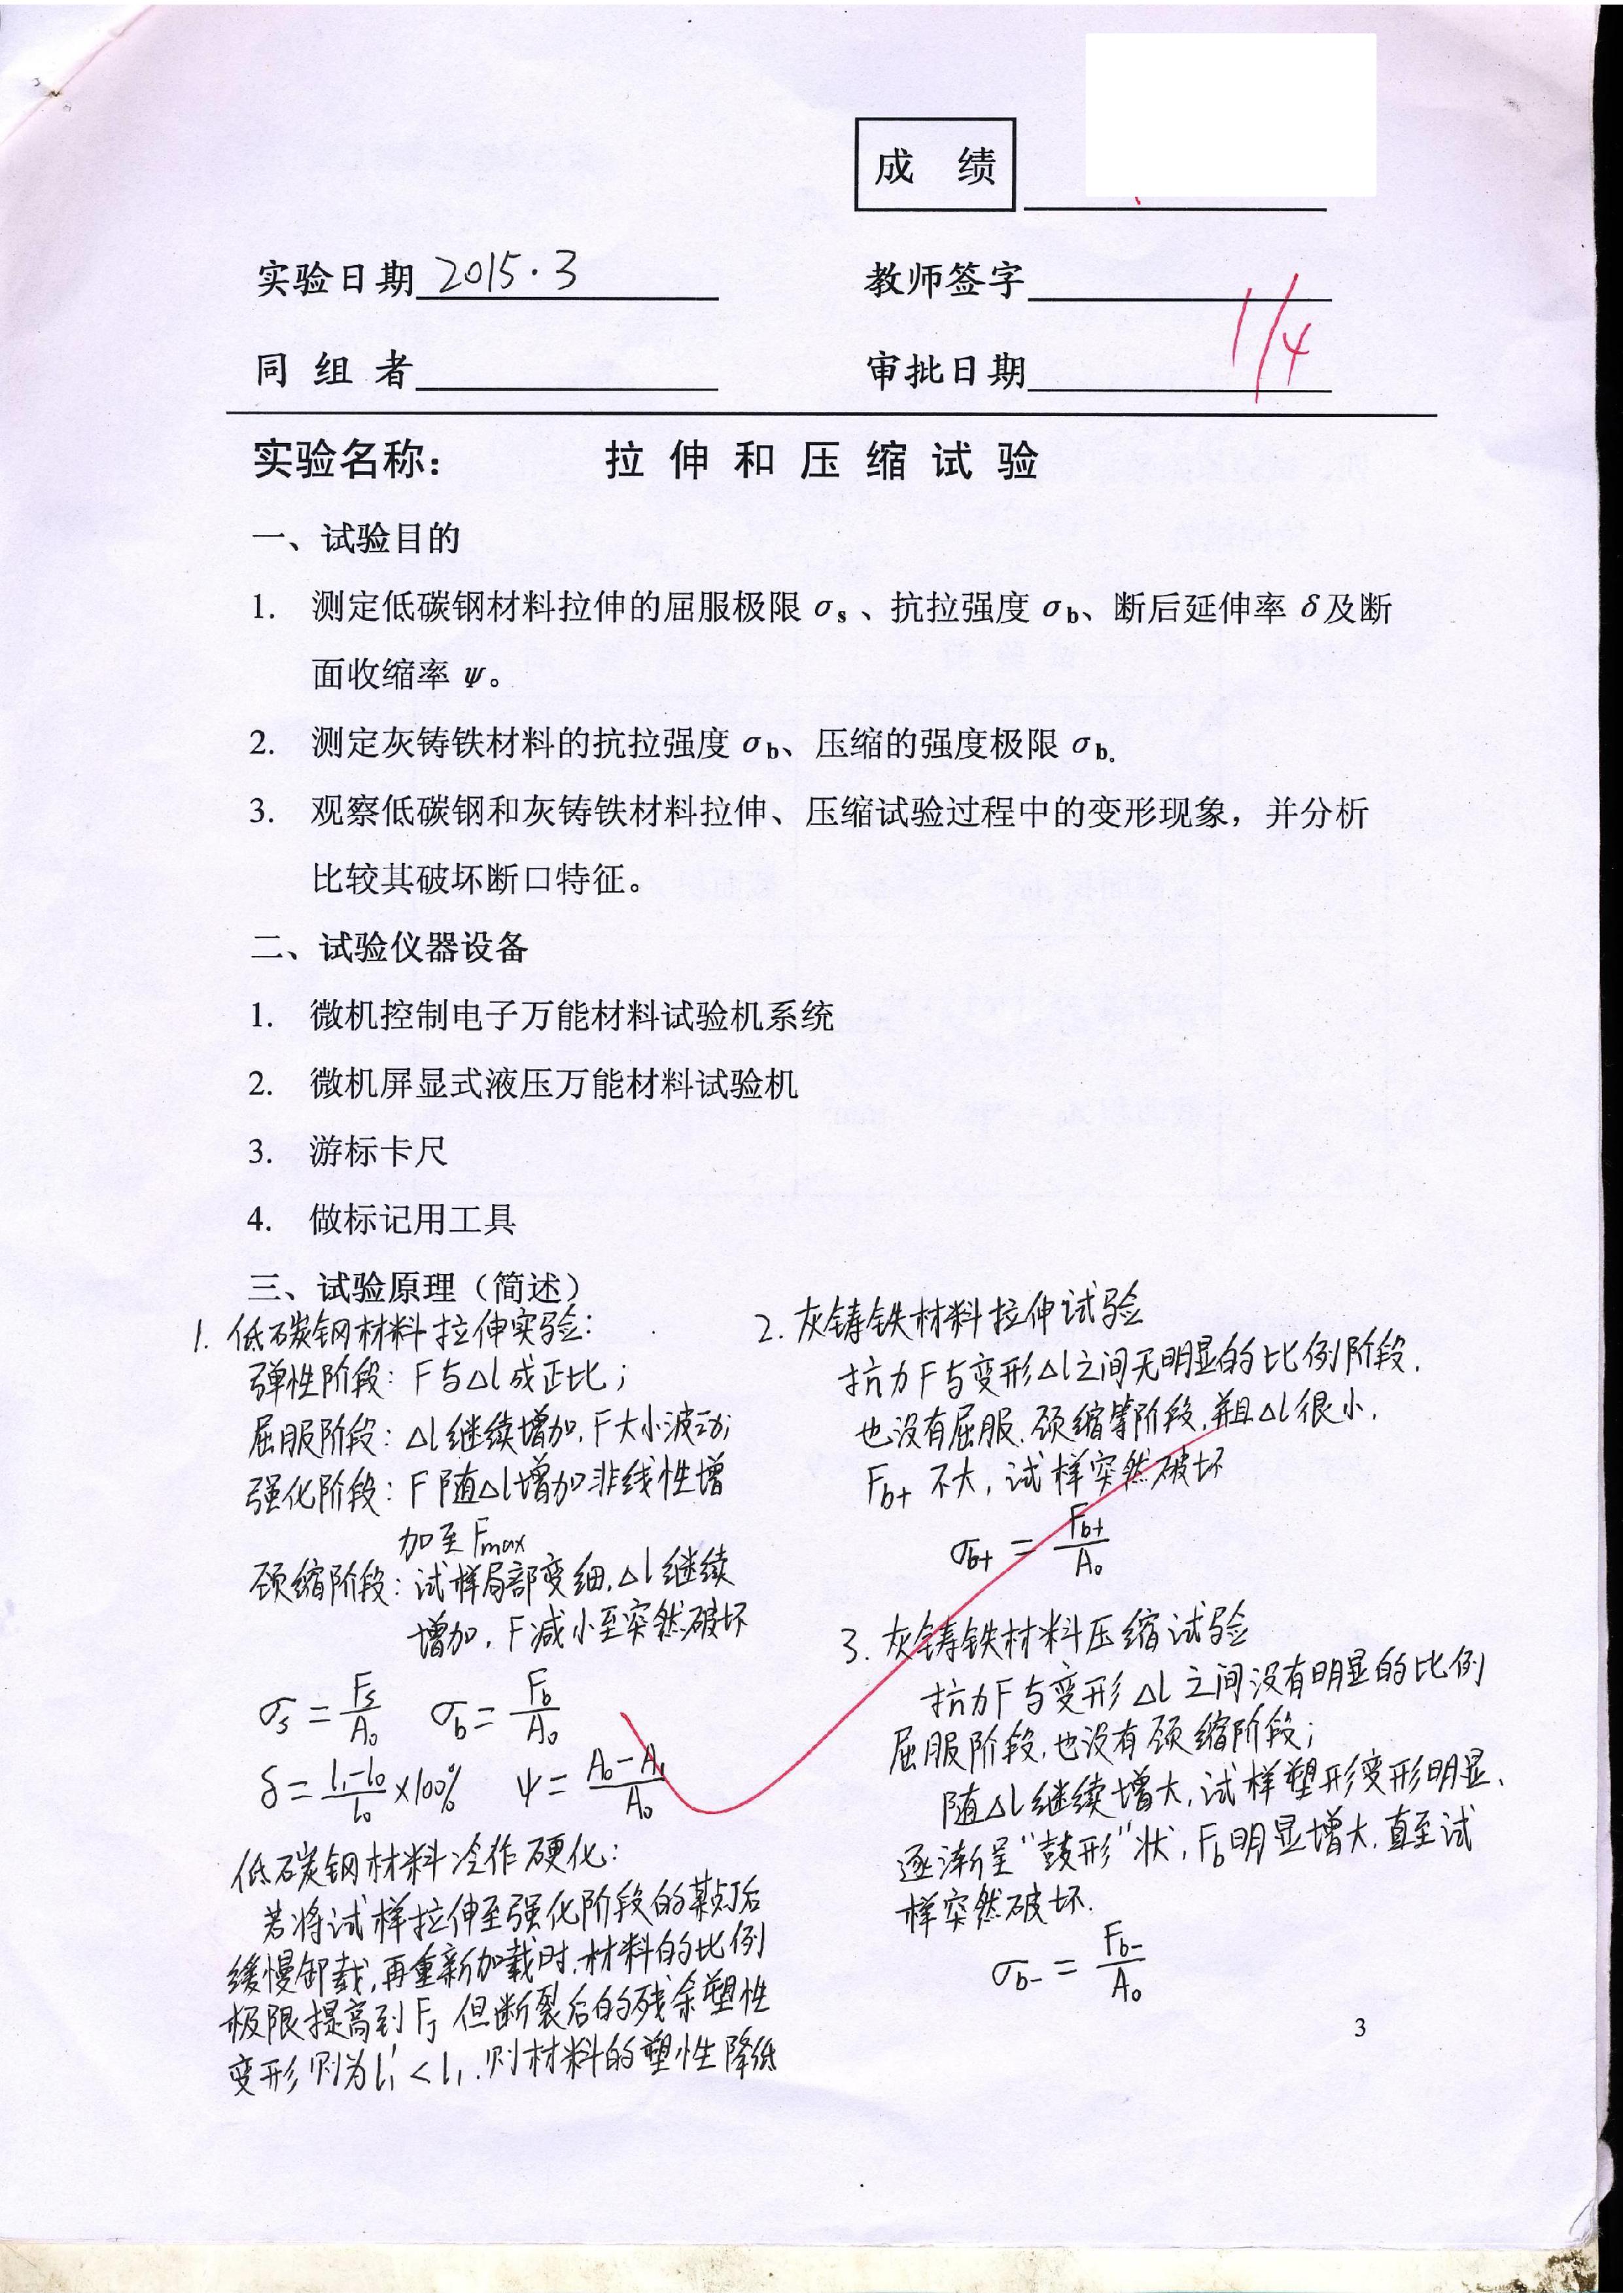 成 绩
实验日期 2015.3 教师签字
同 组 者 审批日期 1/4
实验名称： 拉 伸 和 压 缩 试 验
一、试验目的
1. 测定低碳钢材料拉伸的屈服极限 σs 、抗拉强度 σb、断后延伸率 δ及断
面收缩率 ψ。
2. 测定灰铸铁材料的抗拉强度 σb、压缩的强度极限 σb.
3. 观察低碳钢和灰铸铁材料拉伸、压缩试验过程中的变形现象，并分析
比较其破坏断口特征。
二、试验仪器设备
1. 微机控制电子万能材料试验机系统
2. 微机屏显式液压万能材料试验机
3. 游标卡尺
4. 做标记用工具
三、试验原理（简述）
1. 低碳钢材料拉伸实验：
弹性阶段：F与Δl成正比；
屈服阶段：Δl继续增加，F大小波动；
强化阶段：F随Δl增加非线性增
加至Fmax
颈缩阶段：试样局部变细，Δl继续
增加，F减小至突然破坏
σs = Fs/A0 σb = Fb/A0
δ = (l1-l0)/l0 ×100% ψ = (A0-A1)/A0
低碳钢材料冷作硬化：
若将试样拉伸至强化阶段的某点J后
缓慢卸载，再重新加载时，材料的比例
极限提高到FJ 但断裂后的残余塑性
变形则为l1' < l1，则材料的塑性降低
2. 灰铸铁材料拉伸试验
抗力F与变形Δl之间无明显的比例阶段，
也没有屈服、颈缩等阶段，并且Δl很小，
Fb+ 不大，试样突然破坏
σb+ = Fb+/A0
3. 灰铸铁材料压缩试验
抗力F与变形Δl之间没有明显的比例
屈服阶段，也没有颈缩阶段；
随Δl继续增大，试样塑形变形明显、
逐渐呈“鼓形”状，Fb明显增大，直至试
样突然破坏.
σb- = Fb-/A0
3